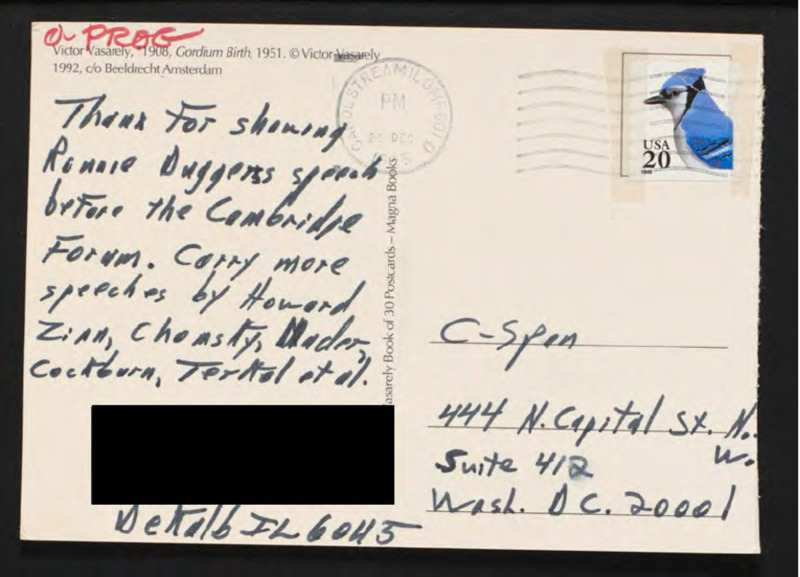 a- PROG
Victor Vasarely, *1908, Gordium Birth, 1951. © Victor Vasarely
1992, c/o Beeldrecht Amsterdam
Thanx For showing
Ronnie Duggerss speech
before the Cambridge
Forum. Carry more
speeches by Howard
Zinn, Chomsky, Nader,
Cockburn, Terkel et al.
DeKalb IL 60115
Vasarely Book of 30 Postcards – Magna Books
CAROL STREAM IL
PM
DEC
USA
20
C-Span
444 N. Capital St. N.
W.
Suite 412
Wash. D C. 20001